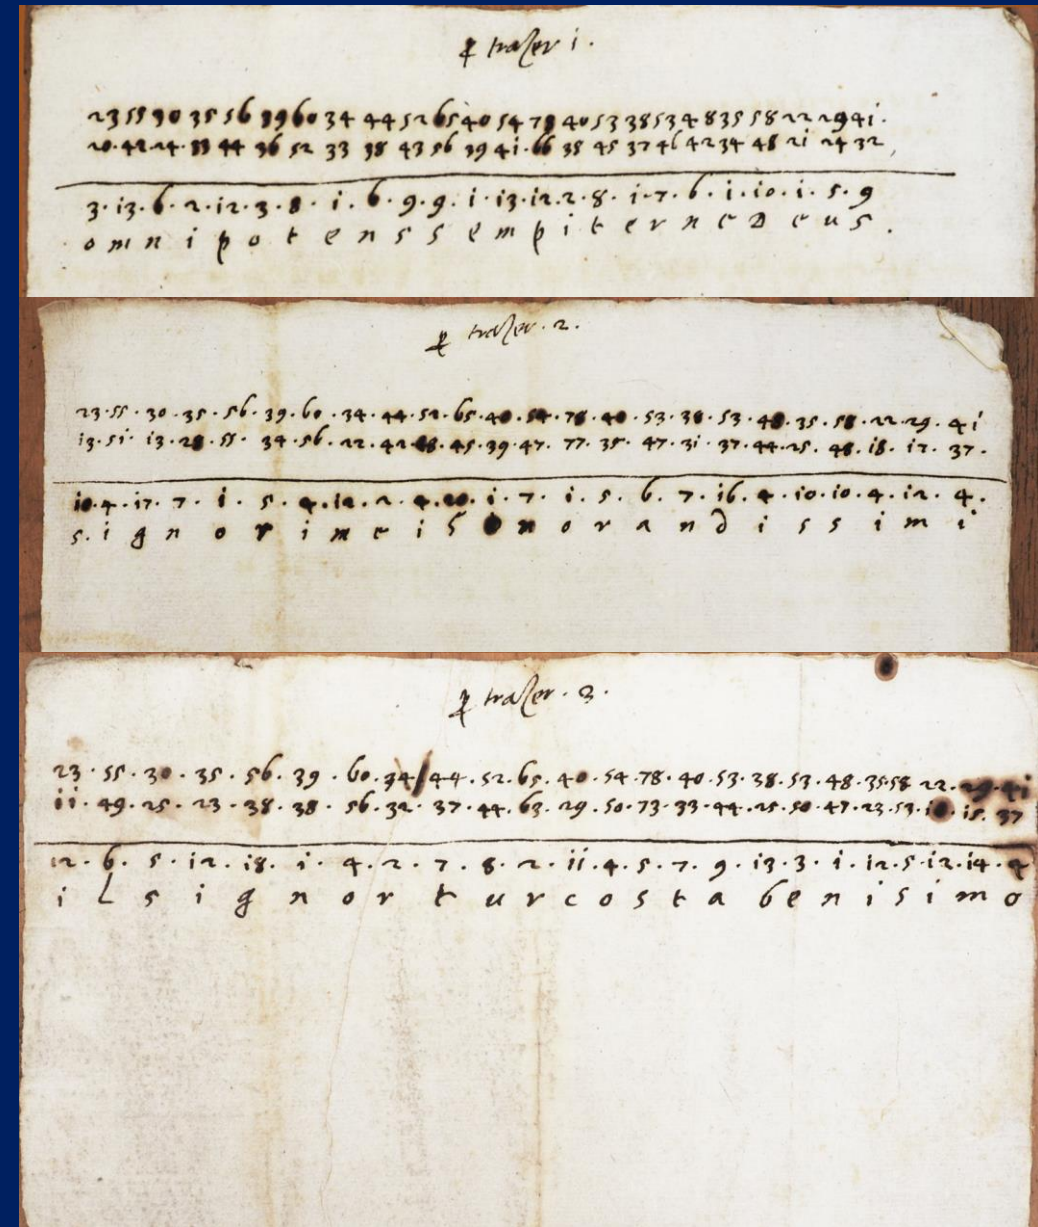 ꝑ trazer i .
23 55 30 35 56 39 60 34 44 52 65 40 54 78 40 53 38 53 48 35 58 22 29 4i .
20 . 42 . 24 . 33 44 36 52 33 38 43 56 39 4i . 66 38 45 37 46 42 34 48 2i 24 32
3 . i3 . 6 . 2 . i2 . 3 . 8 . i . 6 . 9 . 9 . i . i3 . i2 . 2 . 8 . i . 7 . 6 . i . i0 . i . 5 . 9
o m n i p o t e n s s e m p i t e r n e D e u s .
ꝑ trazer . 2 .
23 . 55 . 30 . 35 . 56 . 39 . 60 . 34 . 44 . 52 . 65 . 40 . 54 . 78 . 40 . 53 . 38 . 53 . 48 . 35 . 58 . 22 . 29 . 4i
i3 . 5i . i3 . 28 . 55 . 34 . 56 . 22 . 42 . 48 . 45 . 39 . 47 . 77 . 35 . 47 . 3i . 37 . 44 . 25 . 48 . i8 . i7 . 37 .
i0 . 4 . i7 . 7 . i . 5 . 4 . i2 . 2 . 4 . 20 . i . 7 . i . 5 . 6 . 7 . i6 . 4 . i0 . i0 . 4 . i2 . 4 .
s . i g n o r i m e i S o n o r a n d i s s i m i
ꝑ trazer . 3 .
23 . 55 . 30 . 35 . 56 . 39 . 60 . 34 / 44 . 52 . 65 . 40 . 54 . 78 . 40 . 53 . 38 . 53 . 48 . 35 . 58 22 . 29 . 4i
ii . 49 . 25 . 23 . 38 . 38 . 56 . 32 . 37 . 44 . 63 . 29 . 50 . 73 . 33 . 44 . 25 . 50 . 47 . 23 . 53 . i0 . i5 . 37
i2 . 6 . 5 . i2 . i8 . i . 4 . 2 . 7 . 8 . 2 . ii . 4 . 5 . 7 . 9 . i3 . 3 . i . i2 . 5 . i2 . i4 . 4
i L s i g n o r t u r c o s t a b e n i s i m o